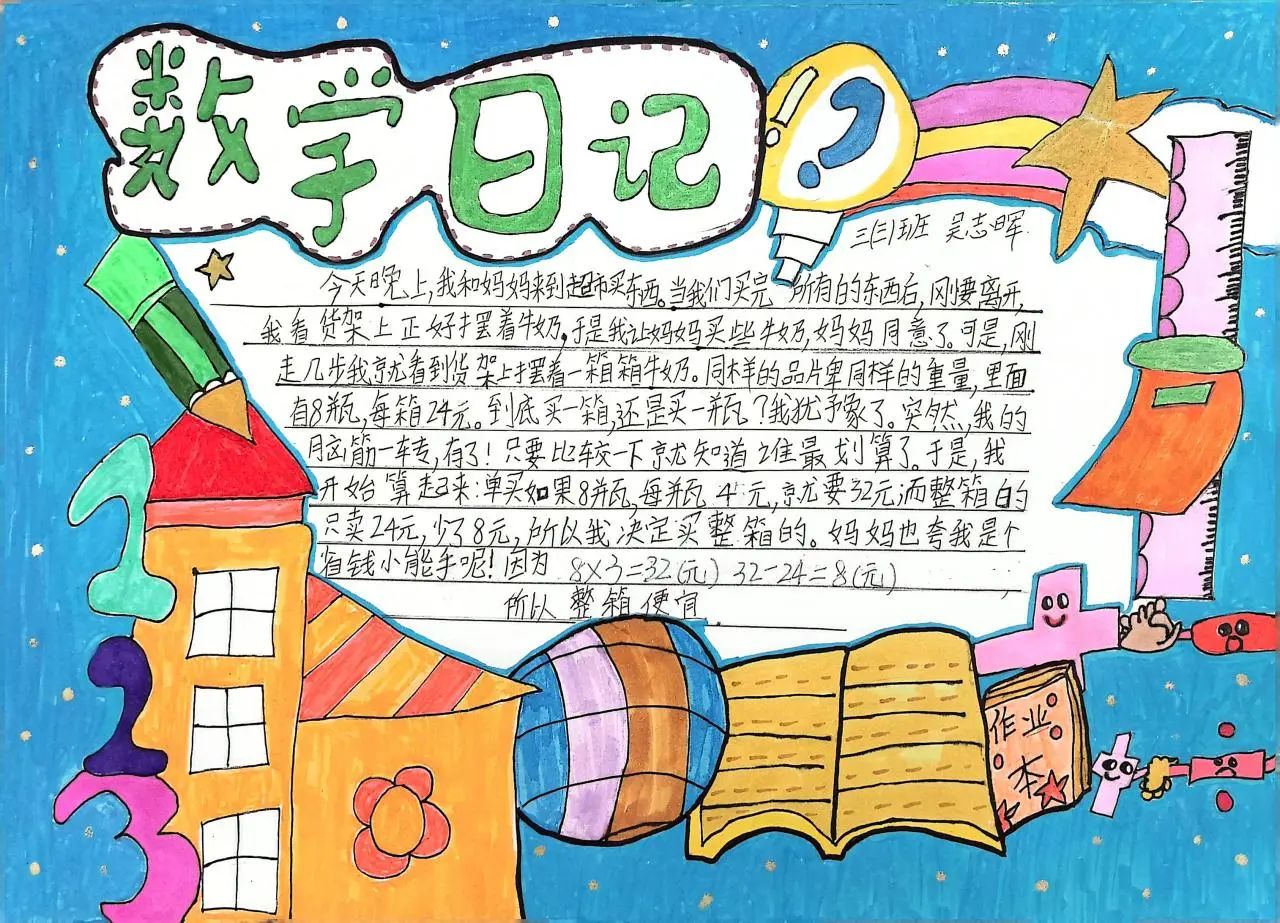 数学日记
!?
三(三)班 吴志晖
今天晚上,我和妈妈来到超市买东西。当我们买完 所有的东西后,刚要离开,
我看货架上正好摆着牛奶。于是我让妈妈买些牛奶,妈妈同意了。可是,刚
走几步我就看到货架上摆着一箱箱牛奶。同样的品片卑同样的重量,里面
有8瓶,每箱24元。到底买一箱,还是买一瓶?我犹予象了。突然,我的
月齿筋一转,有了!只要比较一下就知道谁最划算了。于是,我
开始算起来:单买如果8瓶,每瓶4元,就要32元而整箱的
只卖24元,少了8元,所以我决定买整箱的。妈妈也夸我是个
省钱小能手呢!因为 8×3=32(元) 32-24=8(元)
所以 整箱便宜
1
2
3
作业
本